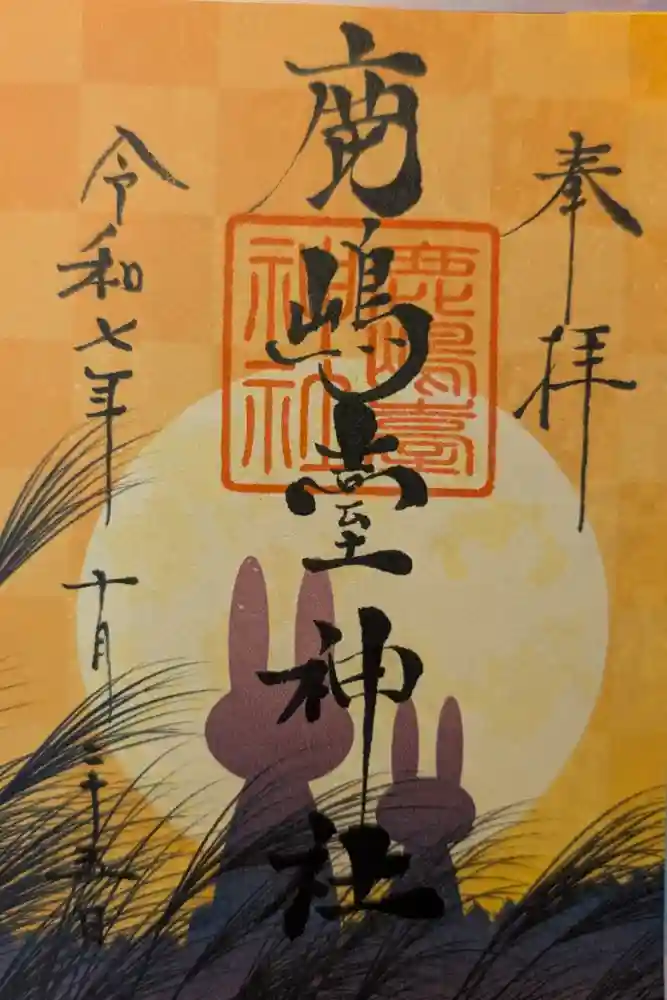 奉拝
鹿嶋臺神社
鹿嶋臺
神社
令和七年 十月二十五日